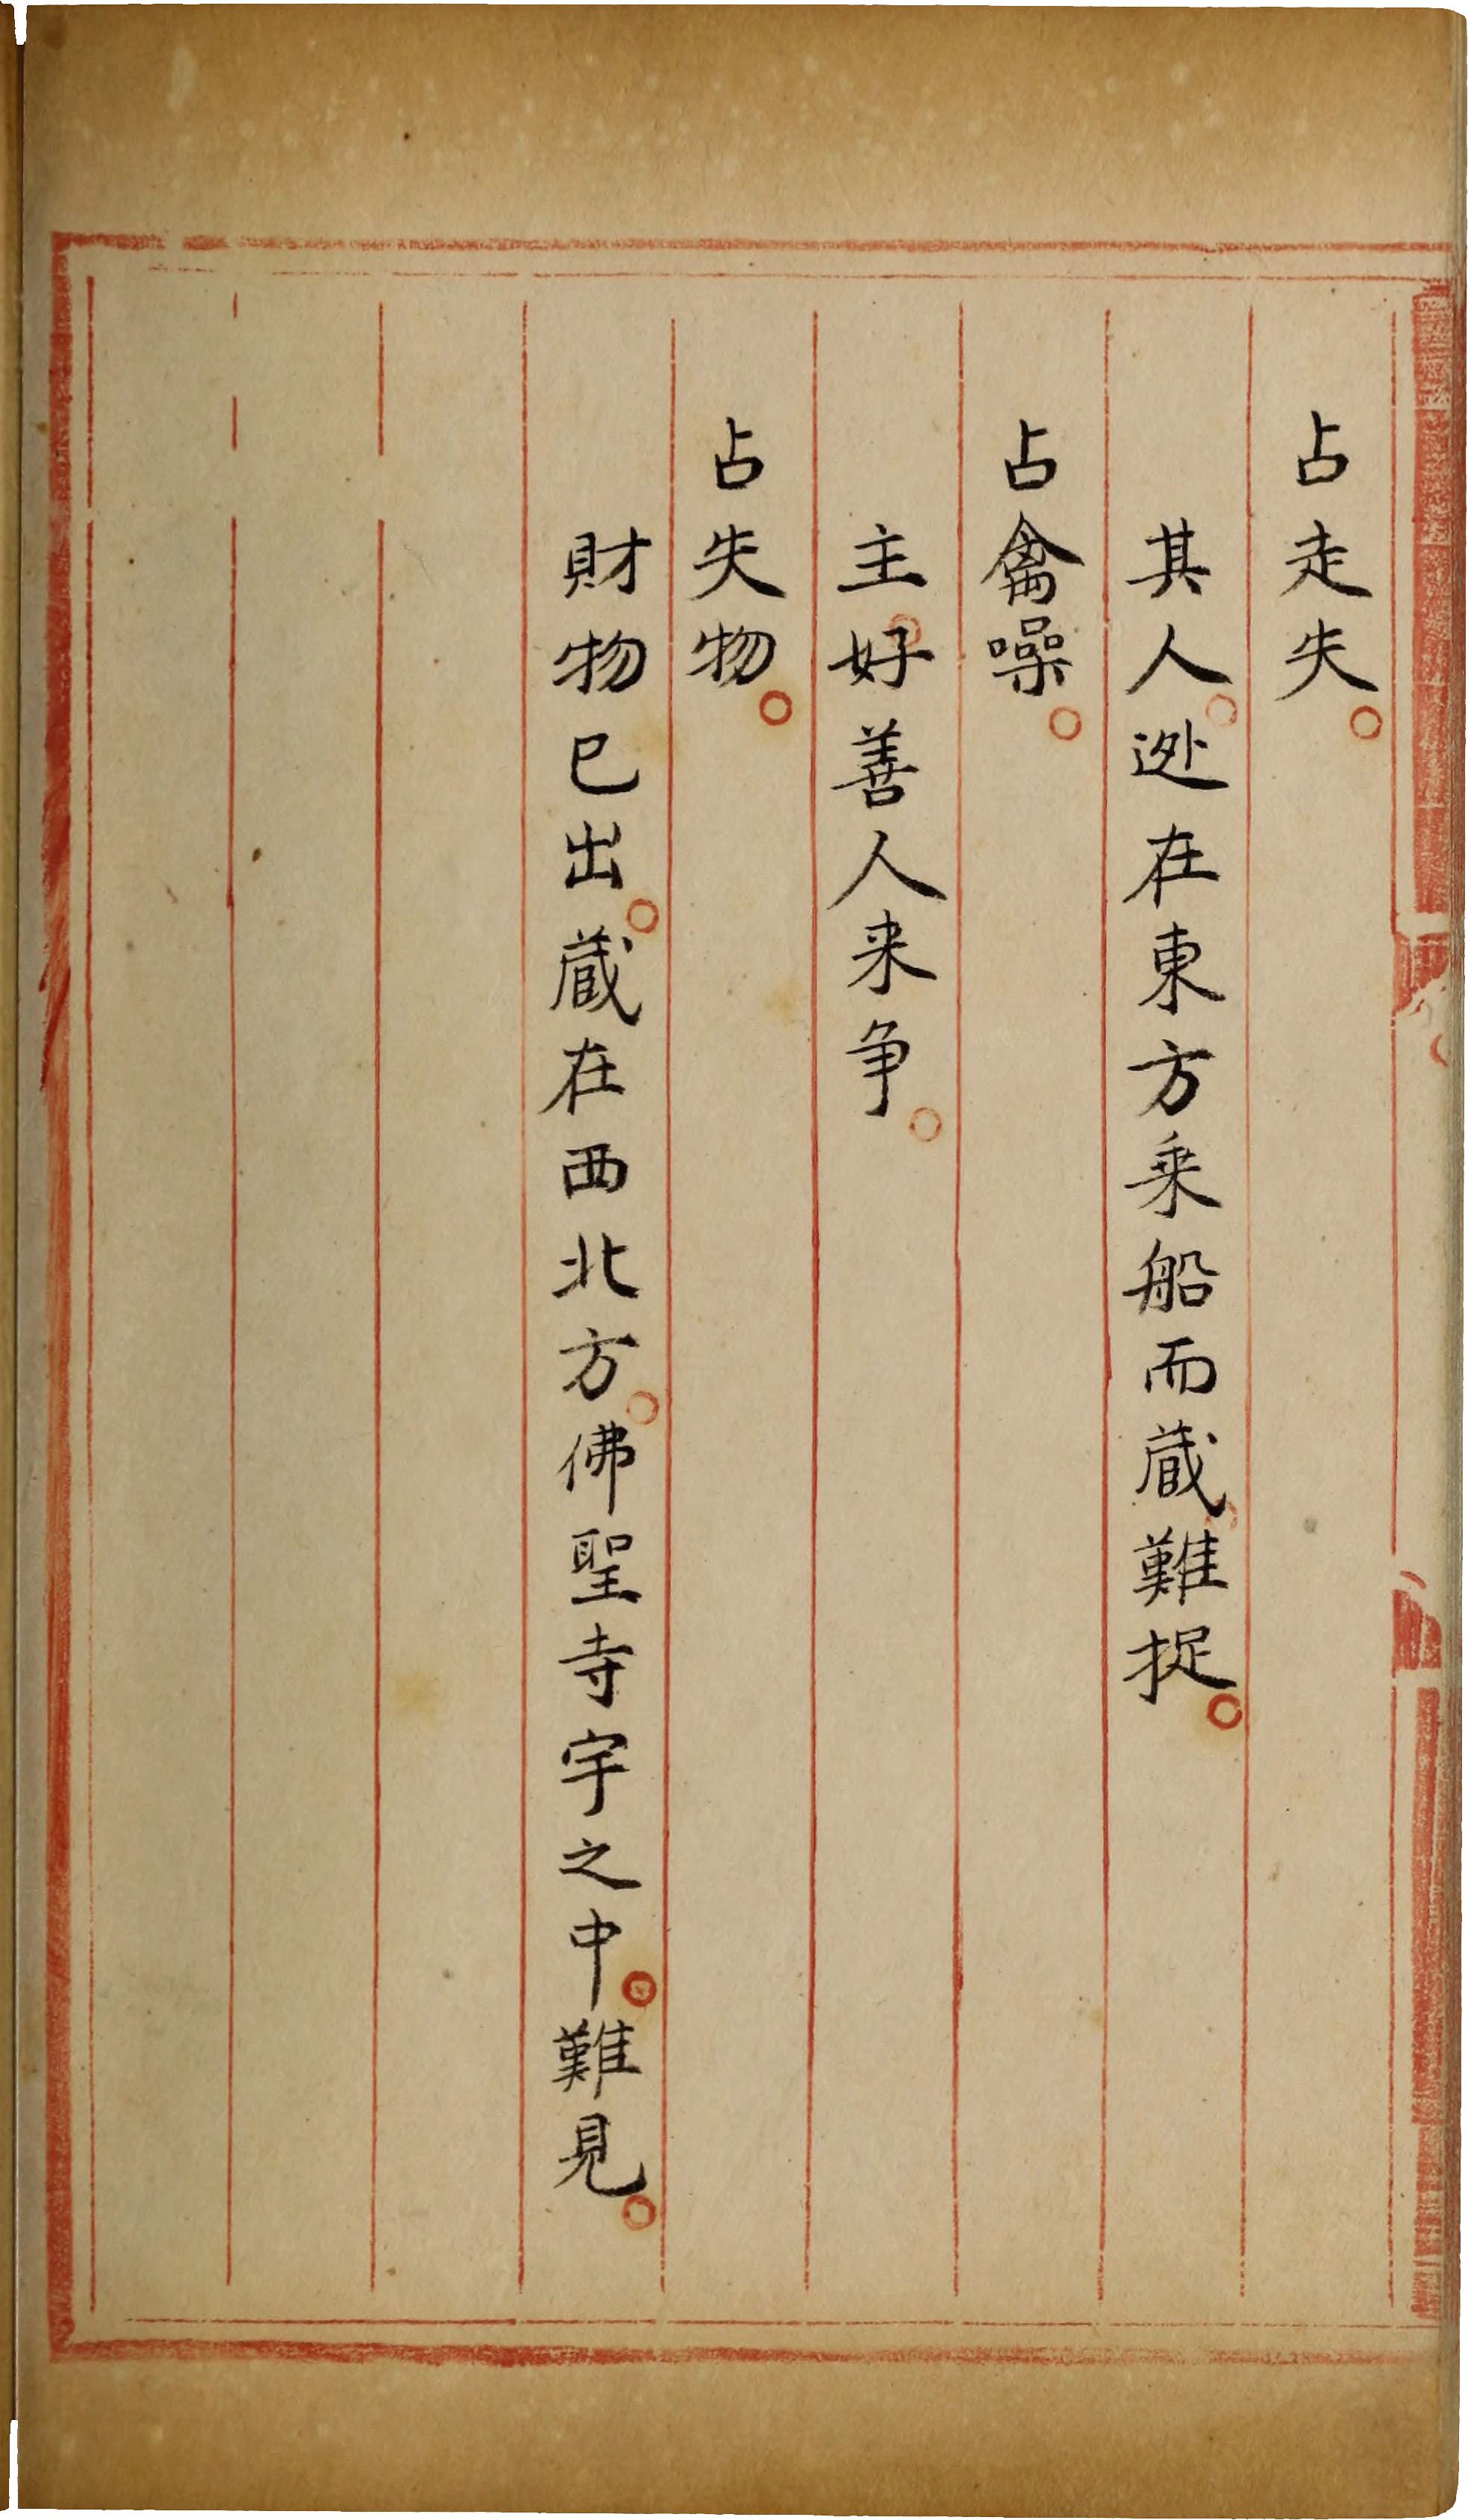 占走失。
其人。逃在東方乘船而蔵。難捉。
占禽噪。
主。好善人来争。
占失物。
財物已出。蔵在西北方。佛聖寺宇之中。難見。